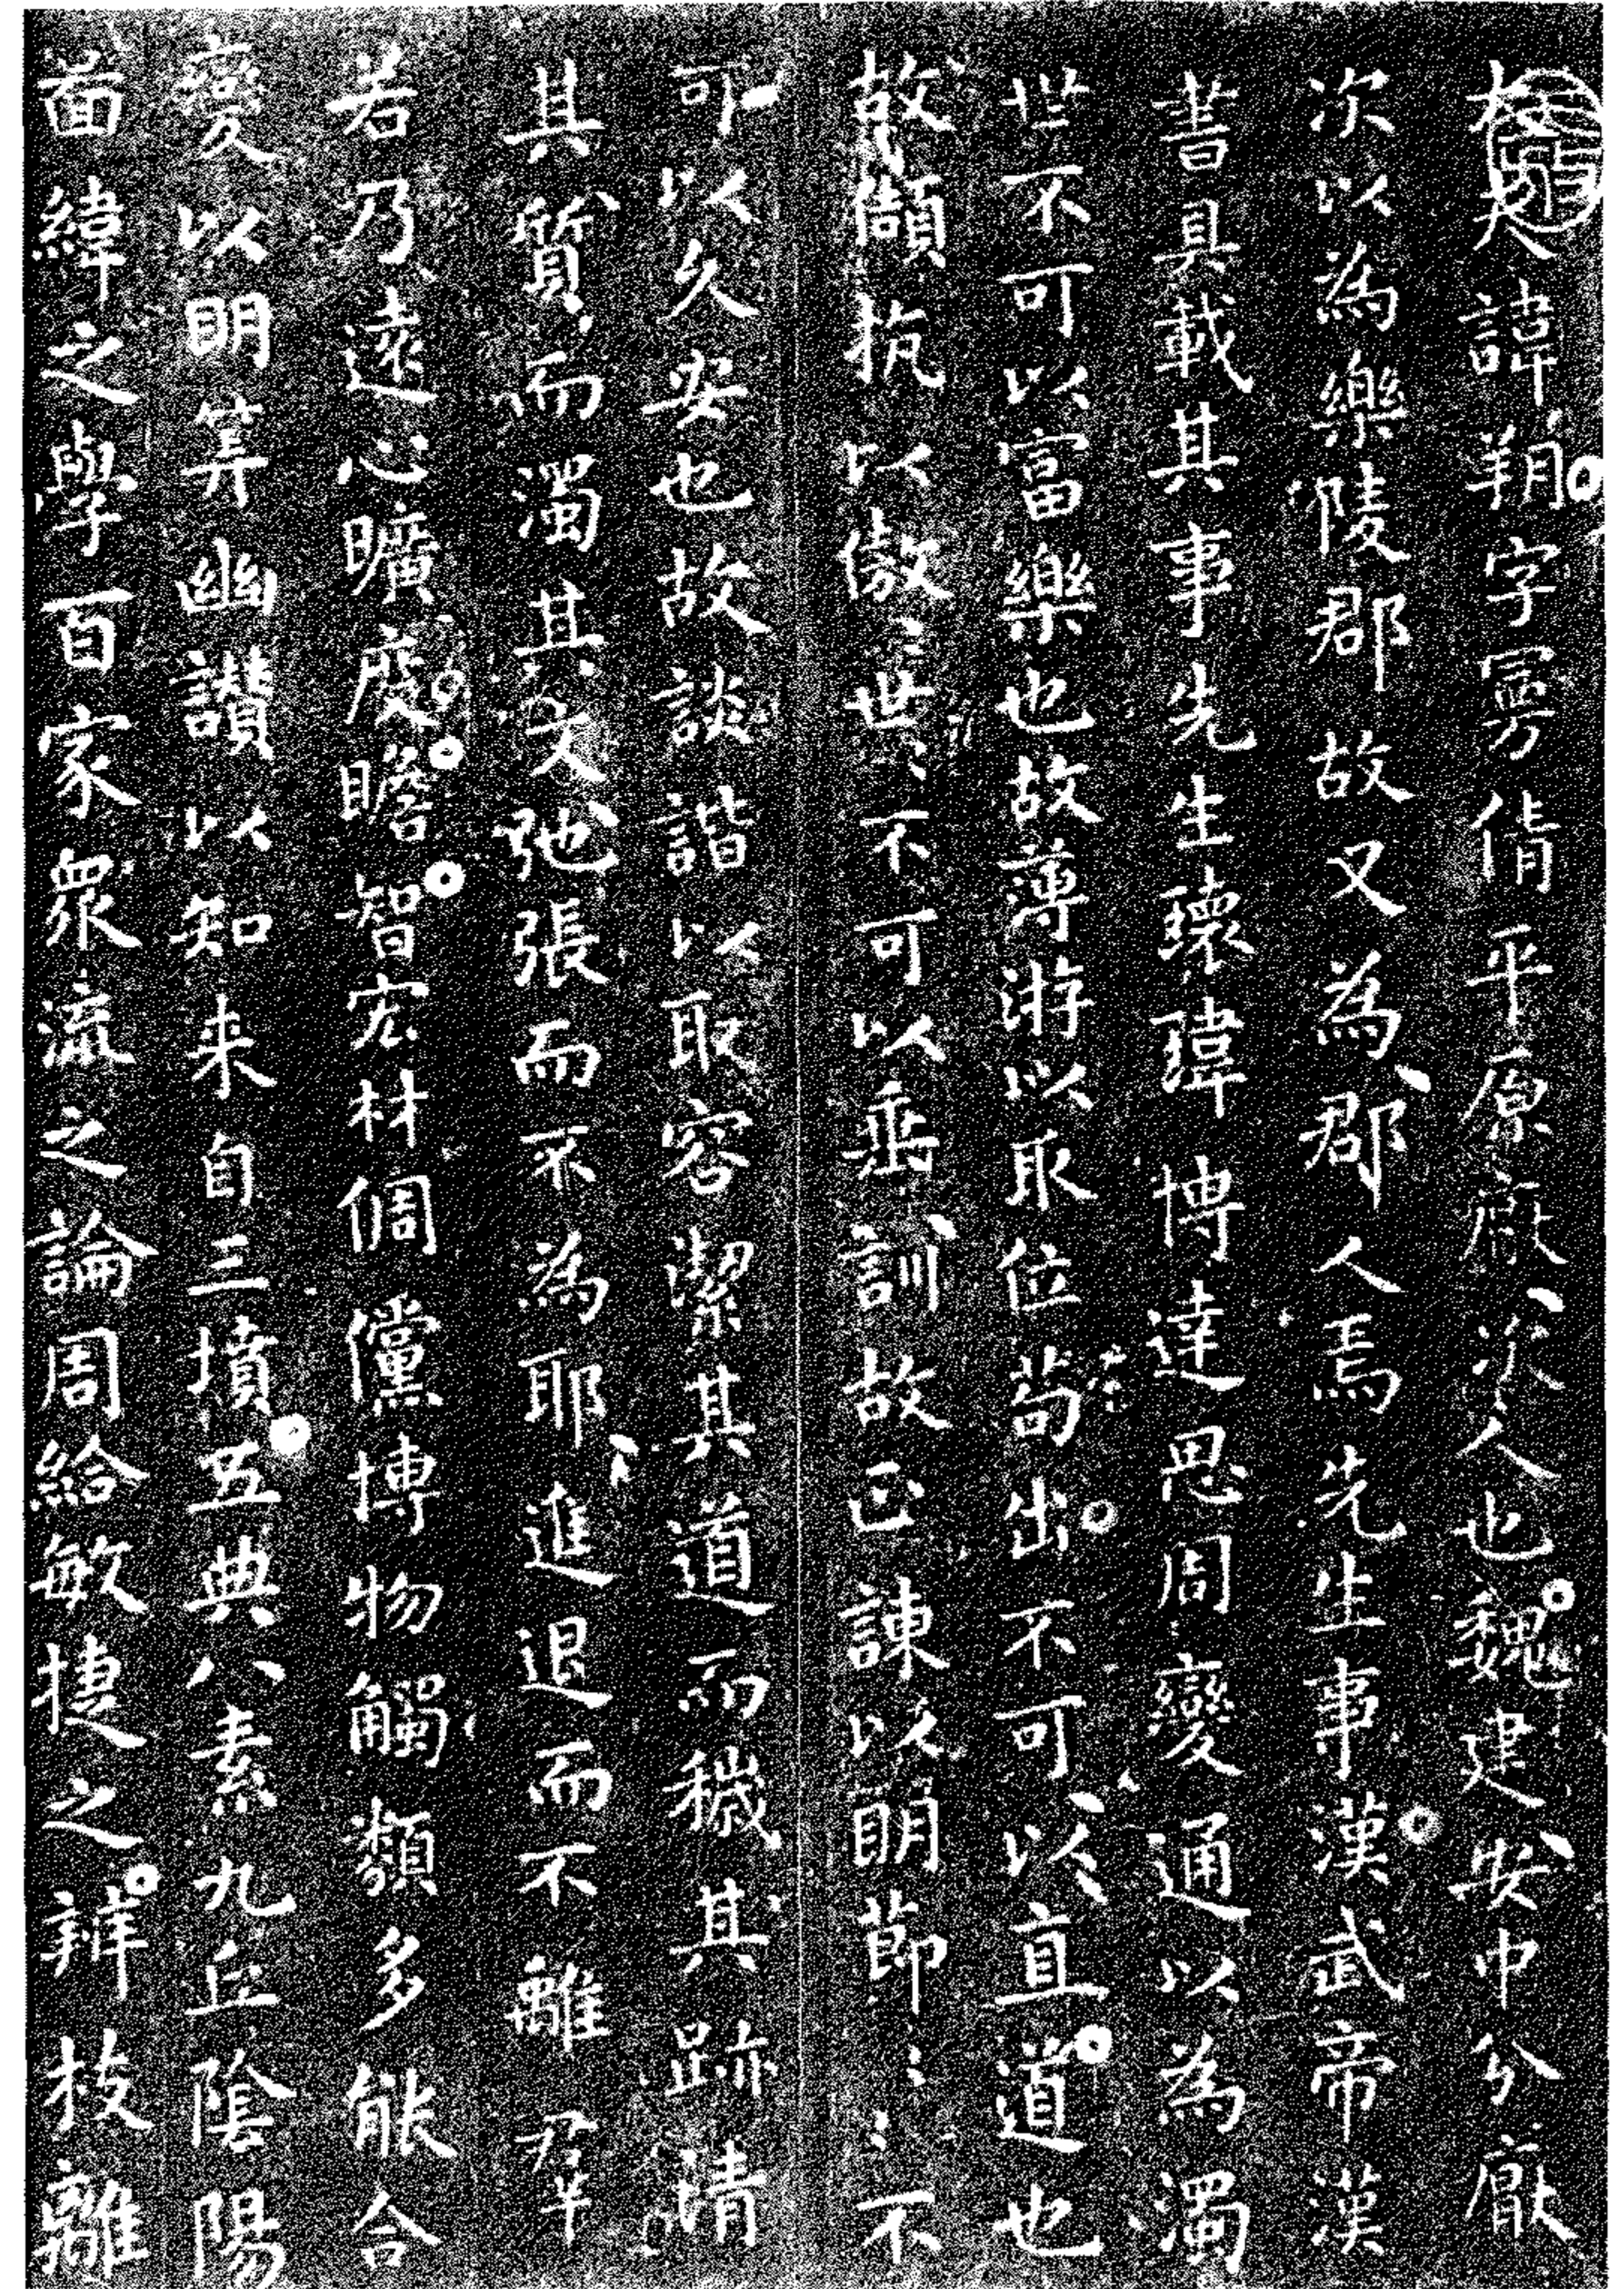 大夫諱朔字曼倩平原厭次人也魏建安中分厭
次以為樂陵郡故又為郡人焉先生事漢武帝漢
書具載其事先生瓌瑋博達思周變通以為濁
世不可以富樂也故薄游以取位苟出不可以直道也
故頡抗以傲世世不可以垂訓故正諫以明節節不
可以久安也故談諧以取容潔其道而穢其跡清
其質而濁其文弛張而不為耶進退而不離群
若乃遠心曠度贍智宏材倜儻博物觸類多能合
變以明筭幽讚以知来自三墳五典八素九丘陰陽
啚緯之學百家衆流之論周給敏捷之辨枝離